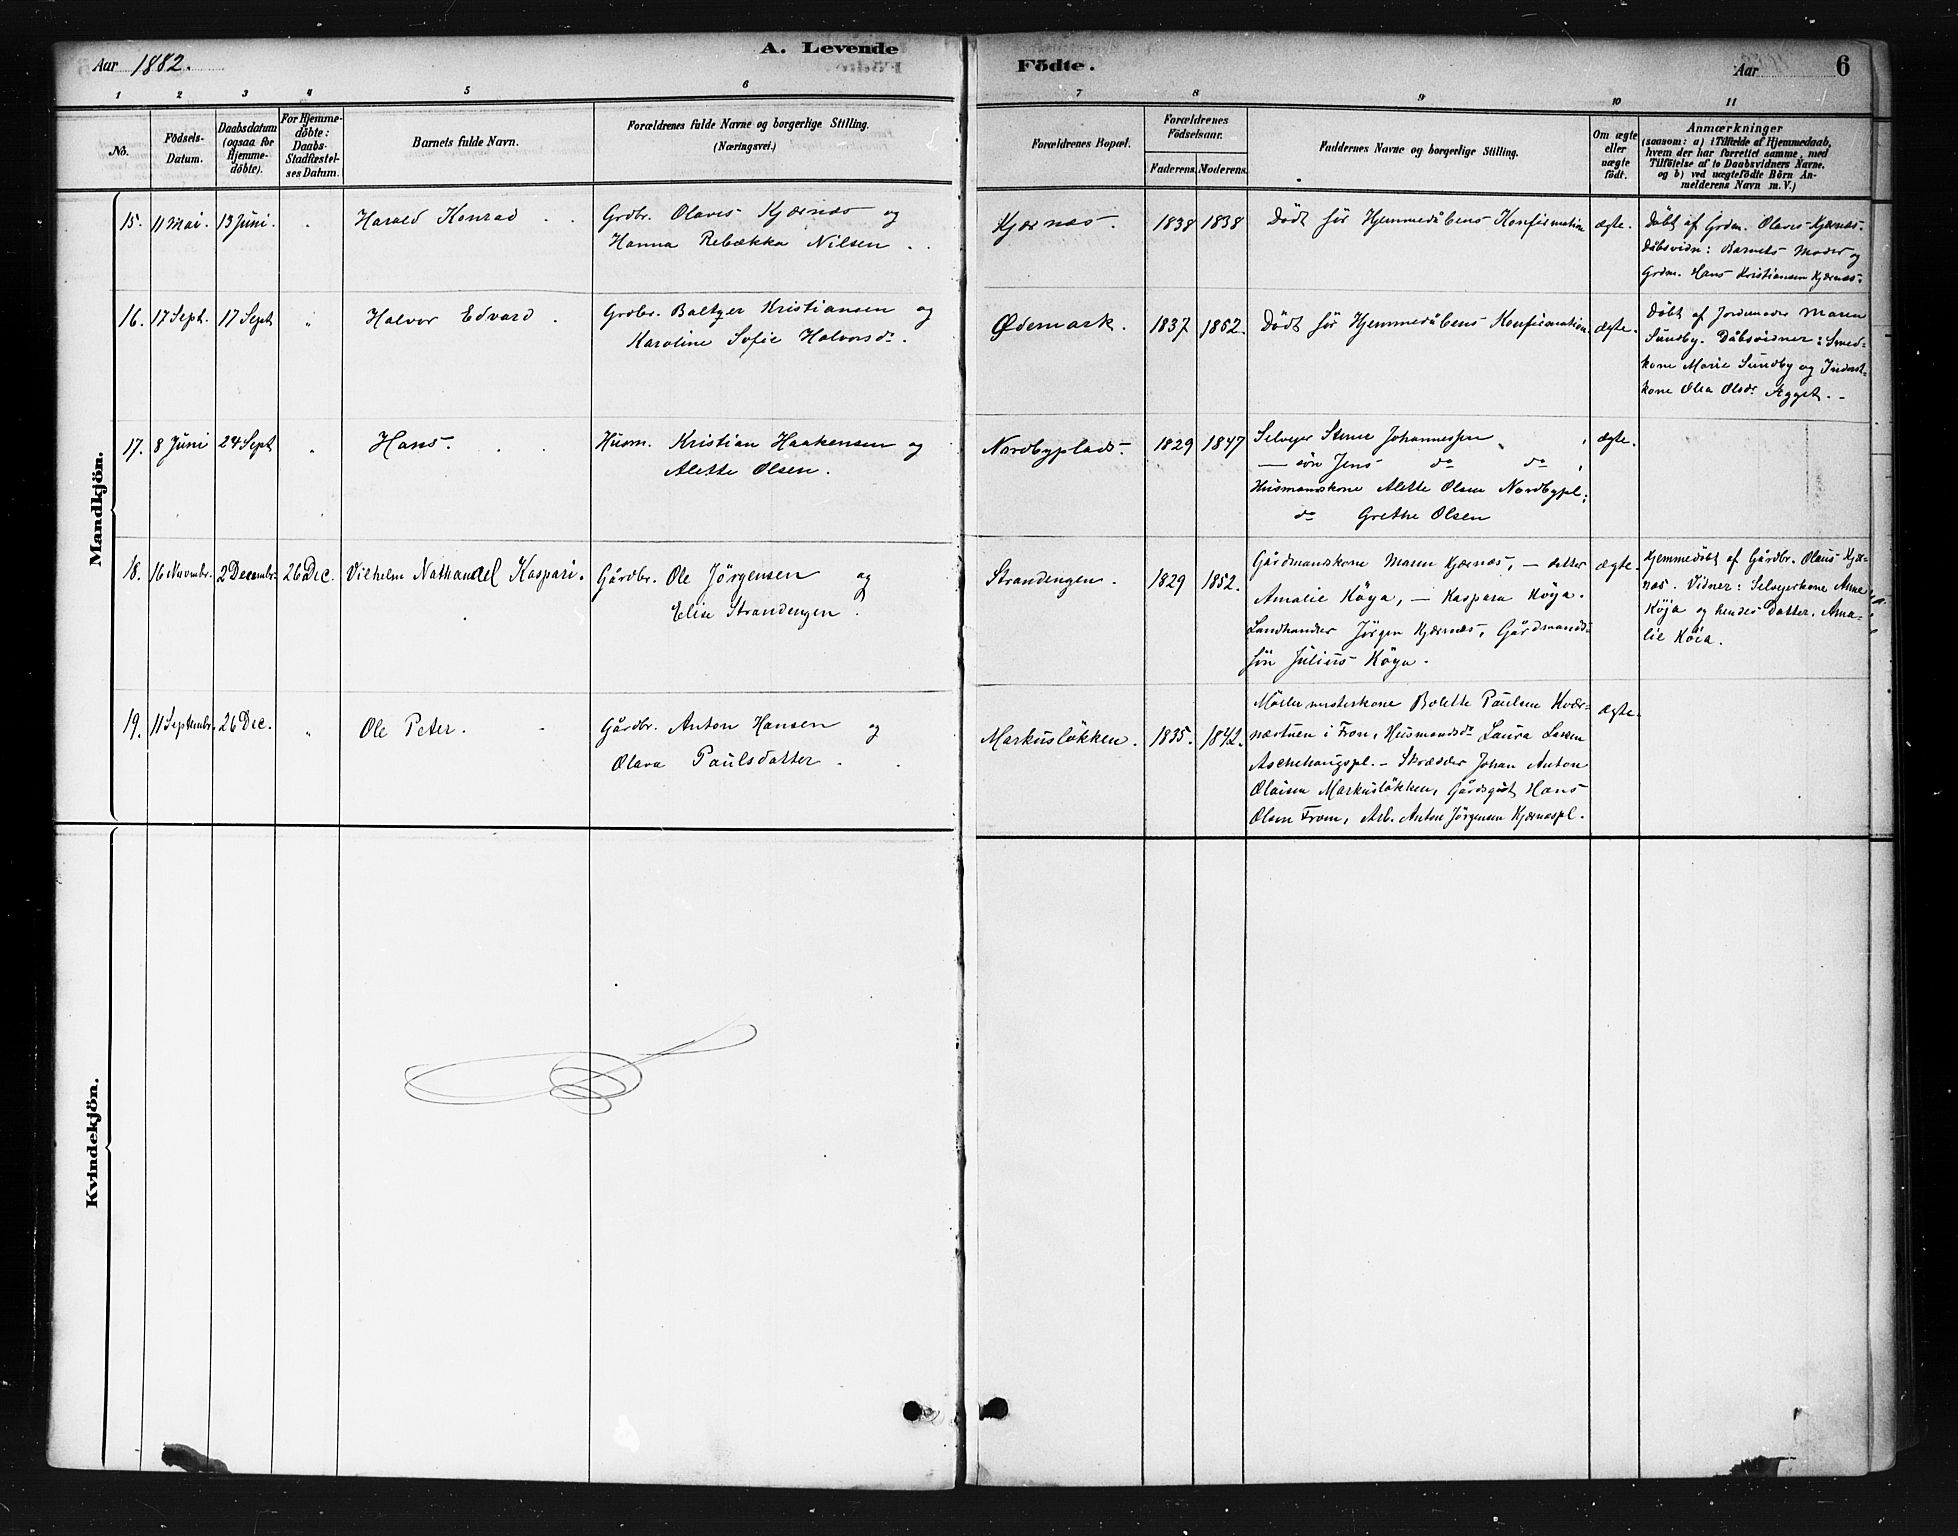 Aar 1882.
A. Levende
Födte.
Aar
6
1 2 3 4 5 6 7 8 9 10 11
No.
Födsels-
Datum.
Daabsdatum
(ogsaa for
Hjemme-
döbte).
For Hjemme-
döbte:
Daabs-
Stadfæstel-
ses Datum.
Barnets fulde Navn.
Forældrenes fulde Navne og borgerlige Stilling.
(Næringsvei.)
Forældrenes Bopæl.
Forældrenes
Födselsaar.
Faderens. Moderens.
Faddernes Navne og borgerlige Stilling.
Om ægte
eller
uægte
födt.
Anmærkninger
(saasom: a) i Tilfælde af Hjemmedaab,
hvem der har forrettet samme, med
Tilföielse af to Daabsvidners Navne,
og b) ved uægtefödte Börn An-
melderens Navn m. V.)
Mandkjön.
15. 11 Mai. 13 Juni. " Harald Konrad
Grdbr. Olaves Kjærnæs og
Hanna Rebækka Nilsen
Kjærnæs. 1838 1838
Dödt för Hjemmedåbens Konfirmation
ægte.
Döbt af Grdm. Olaves Kjærnæs.
Dåbsvidn: Barnets Moder og
Grdm. Hans Kristiansen Kjærnæs.
16. 17 Sept. 17 Sept " Halvor Edvard.
Grdbr. Baltzer Kristiansen og
Karoline Sofie Halvorsdr.
Ødemark. 1837 1852.
Dödt för Hjemmedåbens Konfirmation
ægte.
Döbt af Jordemoder Maren
Sundby. Dåbsvidner: Smed-
kone Marie Sundby og Inderst-
kone Olea Olsdr Agget.
17. 8 Juni 24 Sept " Hans.
Husm. Kristian Haakensen og
Alette Olsen.
Nordbyplads. 1829 1847
Selveyer Johannessen
— sön Jens do do
Husmandskone Alette Olsen Nordbypl;
do Grethe Olsen
ægte.
18. 16 Novmbr. 2 Decembr. 26 Dec. Vilhelm Nathanael Kaspari.
Gårdbr. Ole Jörgensen og
Elise Strandengen.
Strandengen. 1829 1852.
Gårdmandskone Maren Kjærnæs, — datter
Amalie Köya, — Kaspara Köya.
Landhandler Jörgen Kjærnæs, Gårdmands-
sön Julius Köya.
ægte.
Hjemmedöbt af Gårdbr. Olaus Kjær-
næs. Vidner: Selveyerkone Anna
Köja og hendes Datter, Ama-
lie Köia.
19. 11 Septembr. 26 Dec. " Ole Peter.
Gårdbr. Anton Hansen og
Olava Paulsdatter.
Markuslökken. 1835. 1842.
Möllermesterkone Bolette Paulsen Kvær-
næstuen i Fron, Husmandsdr Laura Larsen
Aschehaugspl. — Skrædder Johan Anton
Olaisen Markuslökken, Gårdsgut Hans
Olsen Froen, Arb. Anton Jörgensen Kjærnæspl.
ægte.
Kvindekjön.